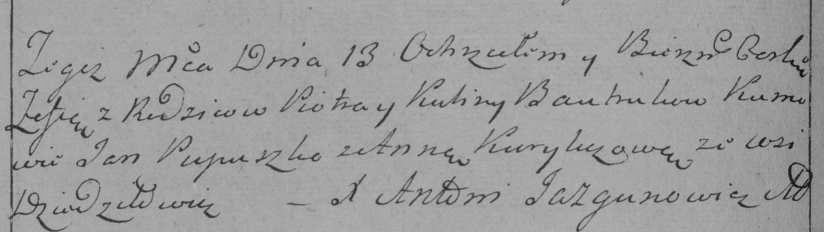 Tegoż Mca Dnia 13 Ochrzciłem y Bierzm
z Rodzicow Piotra y Kuliny Bautrukow Kumo
wie Jan Pupuszko z Anną Kurylczową ze wsi
Dziedziłowicz – X Antoni Jazgunowicz